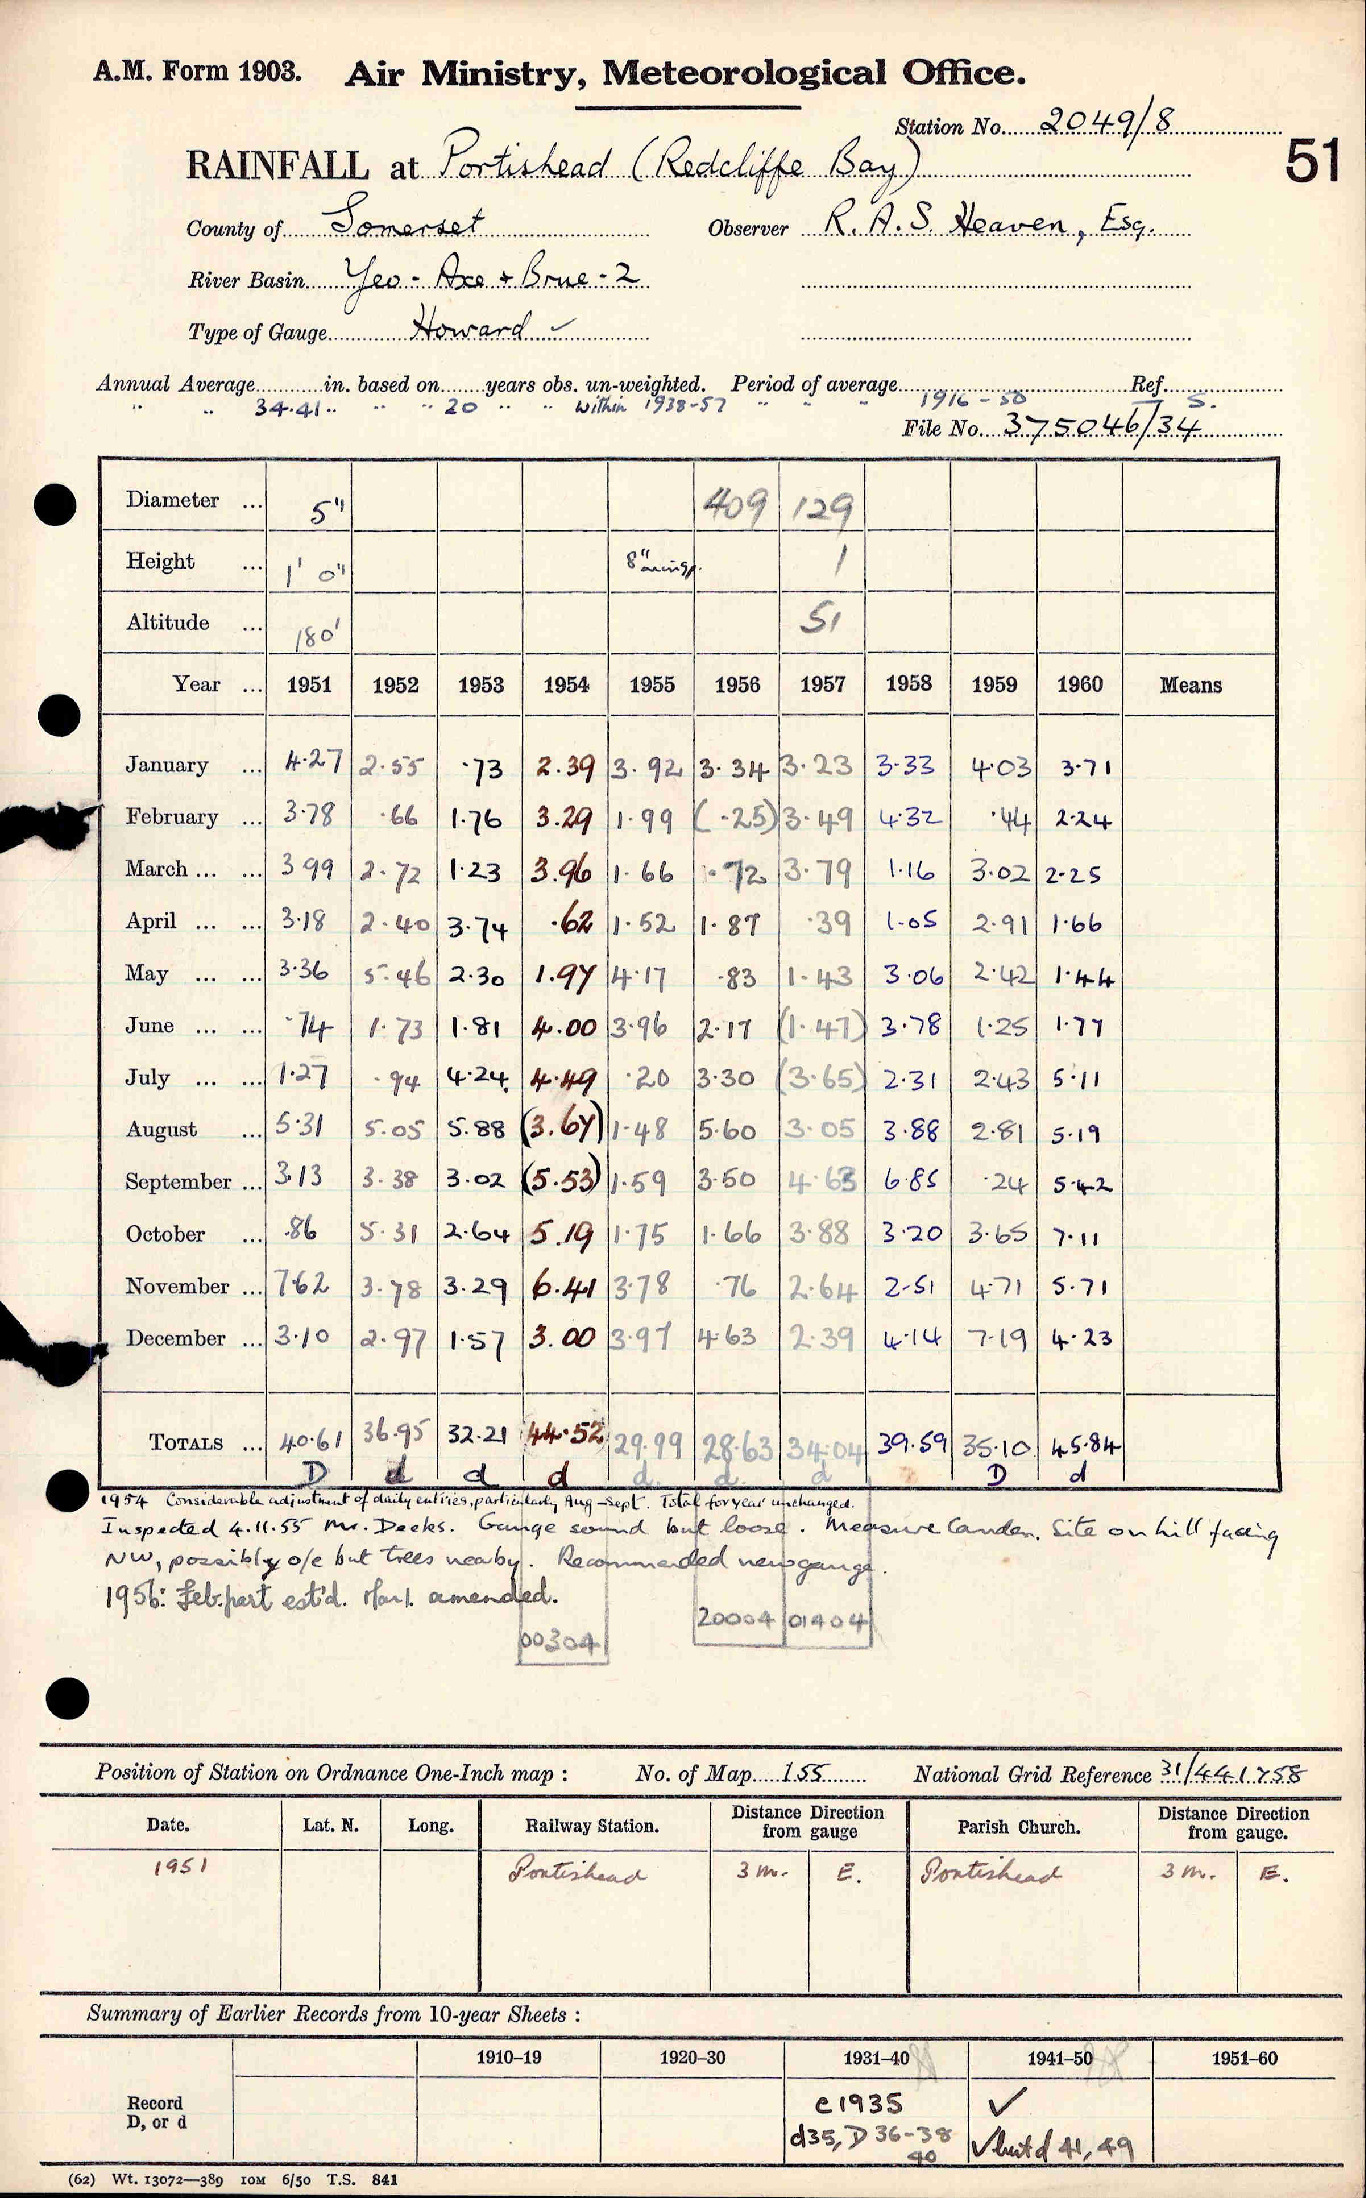 A.M. Form 1903. Air Ministry, Meteorological Office.
Station No. 2049/8
51
RAINFALL at Portishead (Redcliffe Bay)
County of Somerset Observer R. A. S. Heaven, Esq.
River Basin Yeo - Axe + Brue - 2
Type of Gauge Howard ✓
Annual Average in. based on years obs. un-weighted. Period of average Ref.
" " 34.41 " " " 20 " " within 1938-57 " " " 1916-50 S.
File No. 375046/34
Diameter ... 5" 409 129
Height ... 1' 0" 8" 1
Altitude ... 180' 51
Year ... 1951 1952 1953 1954 1955 1956 1957 1958 1959 1960 Means
January ... 4.27 2.55 .73 2.39 3.92 3.34 3.23 3.33 4.03 3.71
February ... 3.78 .66 1.76 3.29 1.99 (.25) 3.49 4.32 .44 2.24
March ... ... 3 99 2.72 1.23 3.96 1.66 .72 3.79 1.16 3.02 2.25
April ... ... 3.18 2.40 3.74 .62 1.52 1.87 .39 1.05 2.91 1.66
May ... ... 3.36 5.46 2.30 1.97 4.17 .83 1.43 3.06 2.42 1.44
June ... ... .74 1.73 1.81 4.00 3.96 2.17 (1.47) 3.78 1.25 1.77
July ... ... 1.27 .94 4.24 4.49 .20 3.30 (3.65) 2.31 2.43 5.11
August ... 5.31 5.05 5.88 (3.67) 1.48 5.60 3.05 3.88 2.81 5.19
September ... 3.13 3.38 3.02 (5.53) 1.59 3.50 4.63 6.85 .24 5.42
October ... .86 5.31 2.64 5.19 1.75 1.66 3.88 3.20 3.65 7.11
November ... 7.62 3.78 3.29 6.41 3.78 .76 2.64 2.51 4.71 5.71
December ... 3.10 2.97 1.57 3.00 3.97 4.63 2.39 4.14 7.19 4.23
TOTALS ... 40.61 36.95 32.21 44.52 29.99 28.63 34.04 39.59 35.10 45.84
D d d d d d d D d
1954 Considerable adjustment of daily entries, particularly Aug-Sept. Total for year unchanged.
Inspected 4.11.55 Mr. Deeks. Gauge sound but loose. Measure Camden. Site on hill facing
NW, possibly o/e but trees nearby. Recommended new gauge.
1956: Feb. part est'd. Mar. amended.
20004 01404
00304
Position of Station on Ordnance One-Inch map : No. of Map 155 National Grid Reference 31/441758
Date. Lat. N. Long. Railway Station. Distance Direction from gauge Parish Church. Distance Direction from gauge.
1951 Portishead 3 m. E. Portishead 3 m. E.
Summary of Earlier Records from 10-year Sheets :
1910–19 1920–30 1931–40 1941–50 1951–60
Record D, or d
c1935 ✓
d35, D 36-38 ✓ but d 41, 49
40
(62) Wt. 13072—389 10M 6/50 T.S. 841